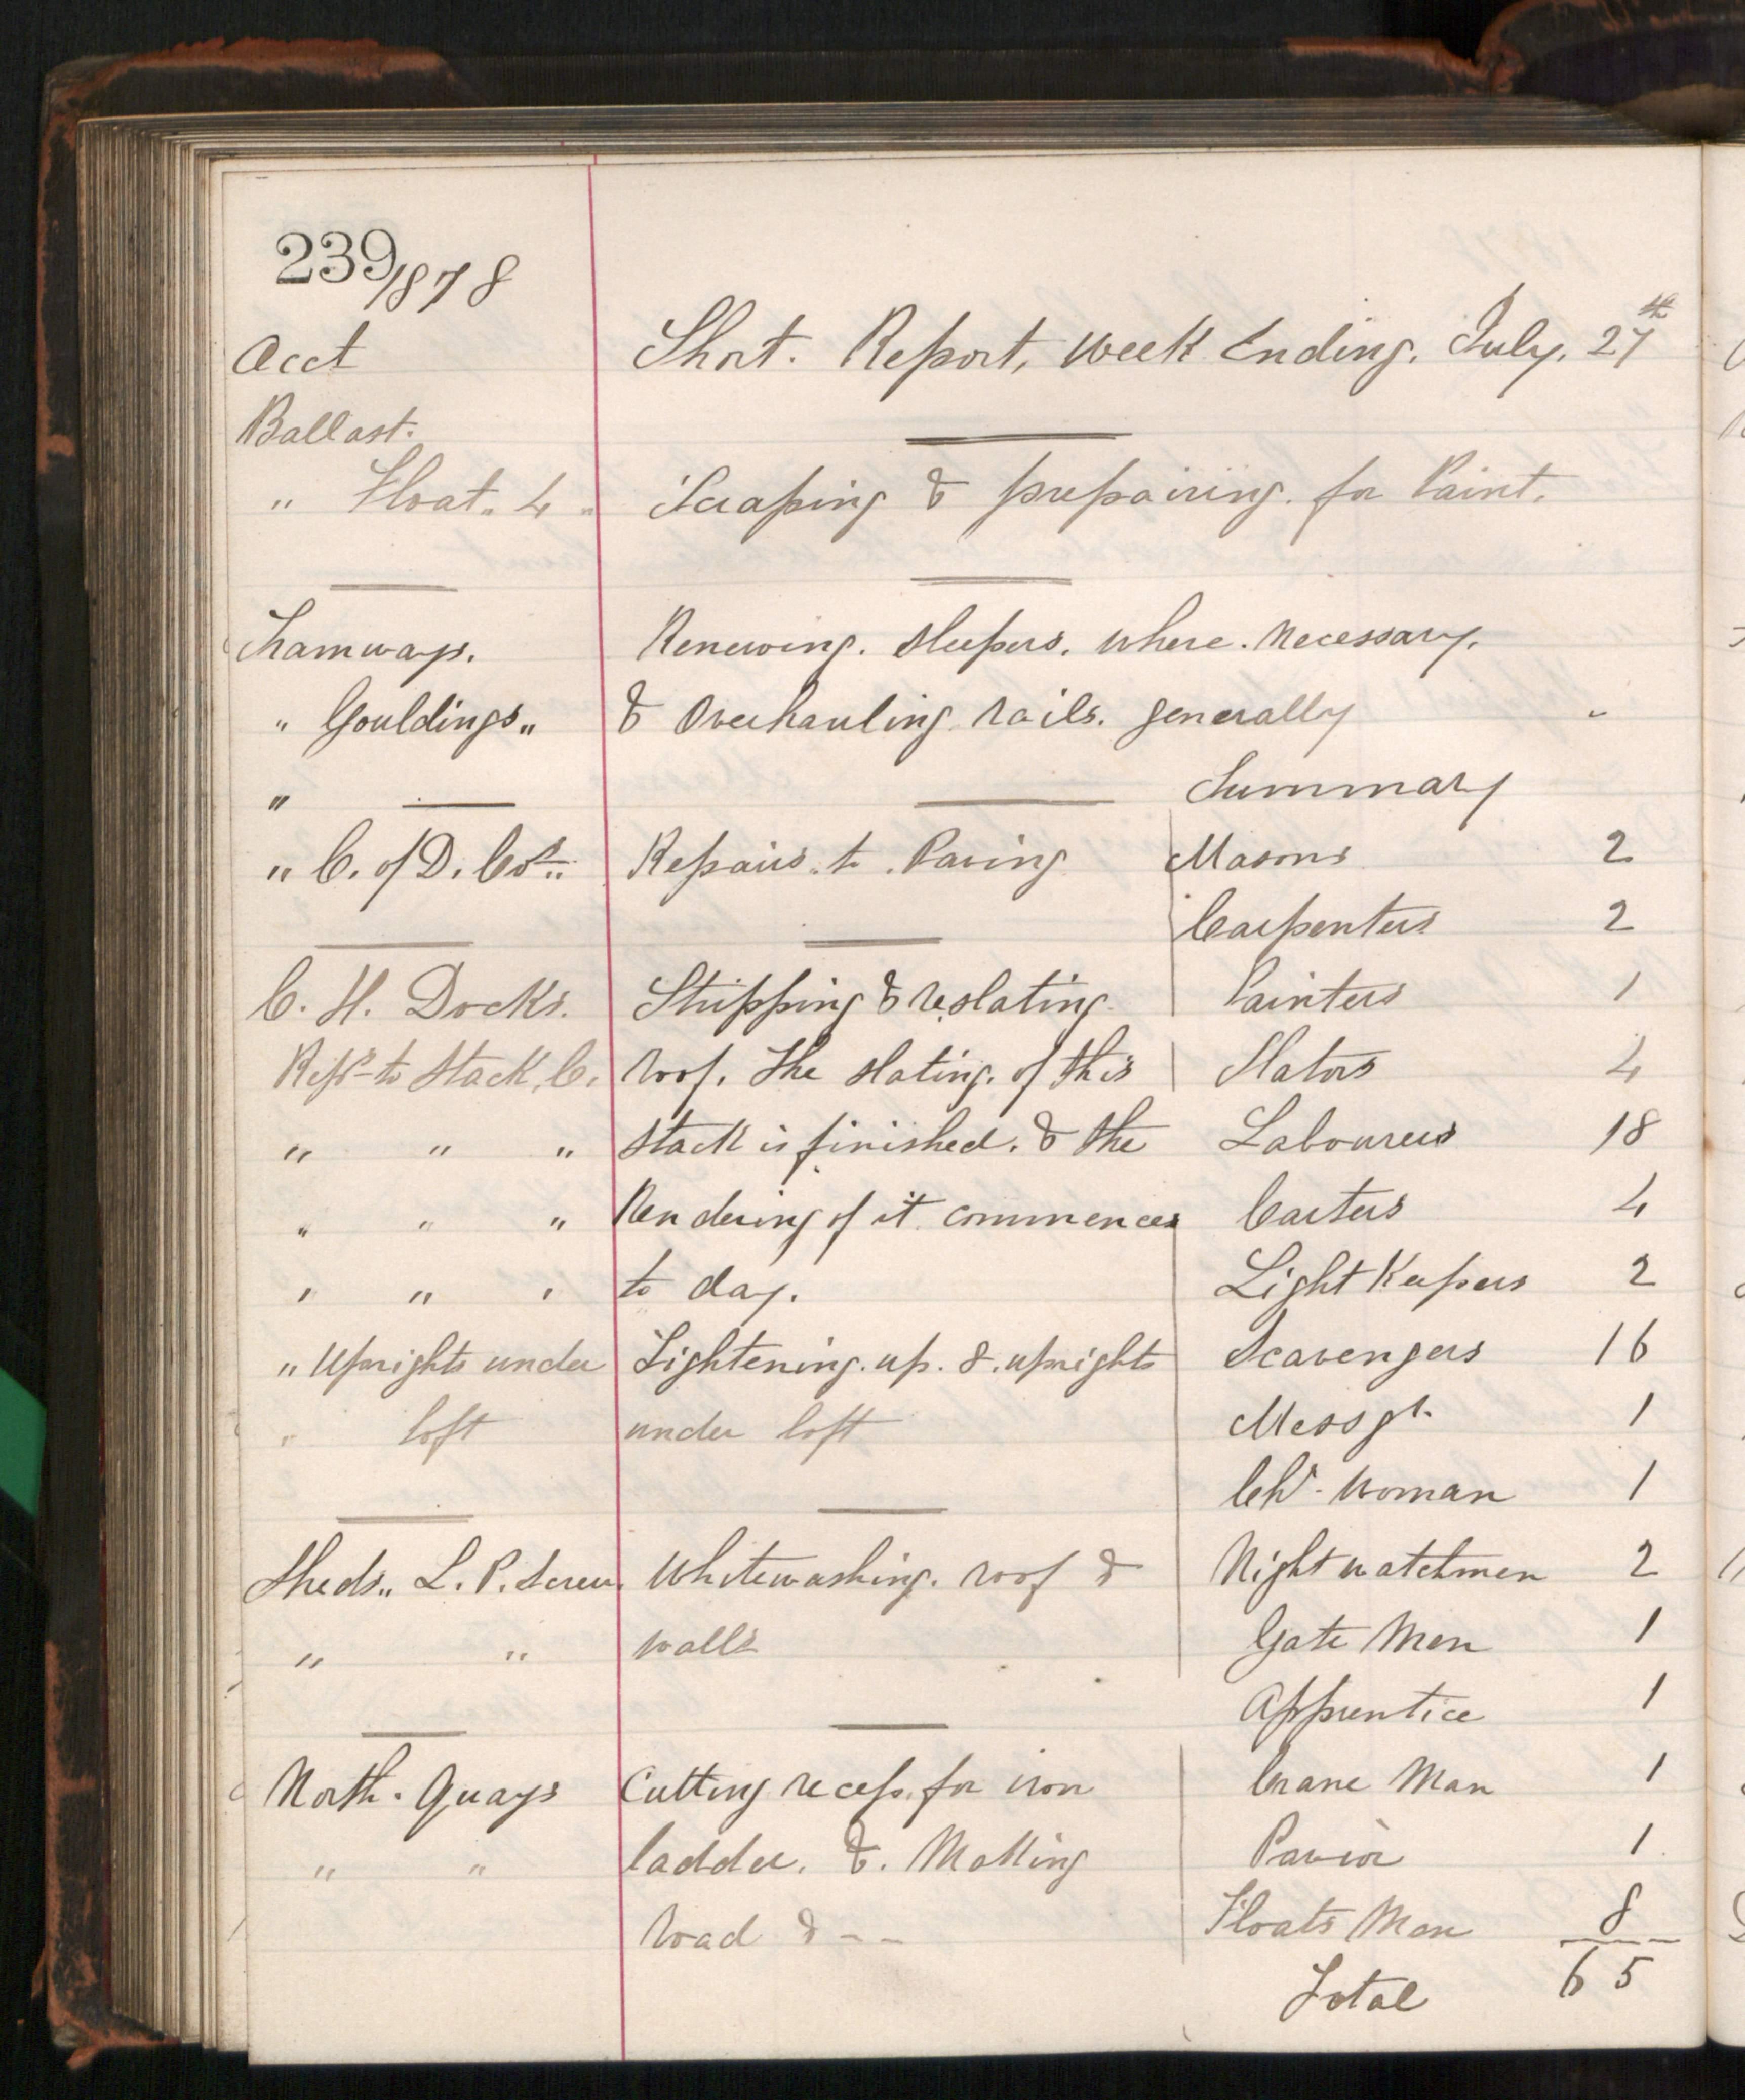 239
1878
Acct Short. Report, Week Ending. July. 27th
Ballast.
" Float. 4 " Scraping & prepairing. for Paint.
Tramways. Renewing. Sleepers. Where. Necessary.
" Gouldings " & Overhauling rails. generally
" Summary
" C. of D. Cos. " Repairs. to. Paving Masons 2
Carpenters 2
C. H. Docks. Stripping & reslating Painters 1
Reps to Stack, C. roof. The slating. of this Slators 4
" " " stack is finished. & the Labourers 18
" " " Rendering of it commences Carters 4
" " " to day. Light Keepers 2
" Uprights under Lightening. up. 8. uprights Scavengers 16
" loft under loft Messgr. 1
Chr. Woman 1
Sheds. " L. P. Screw. Whitewashing. roof & Night watchmen 2
" " walls Gate Men 1
Apprentice 1
North. Quays Cutting recess. for iron Crane Man 1
" " ladder. &. Making Pavior 1
Road & - - Floats Men 8
Total 65